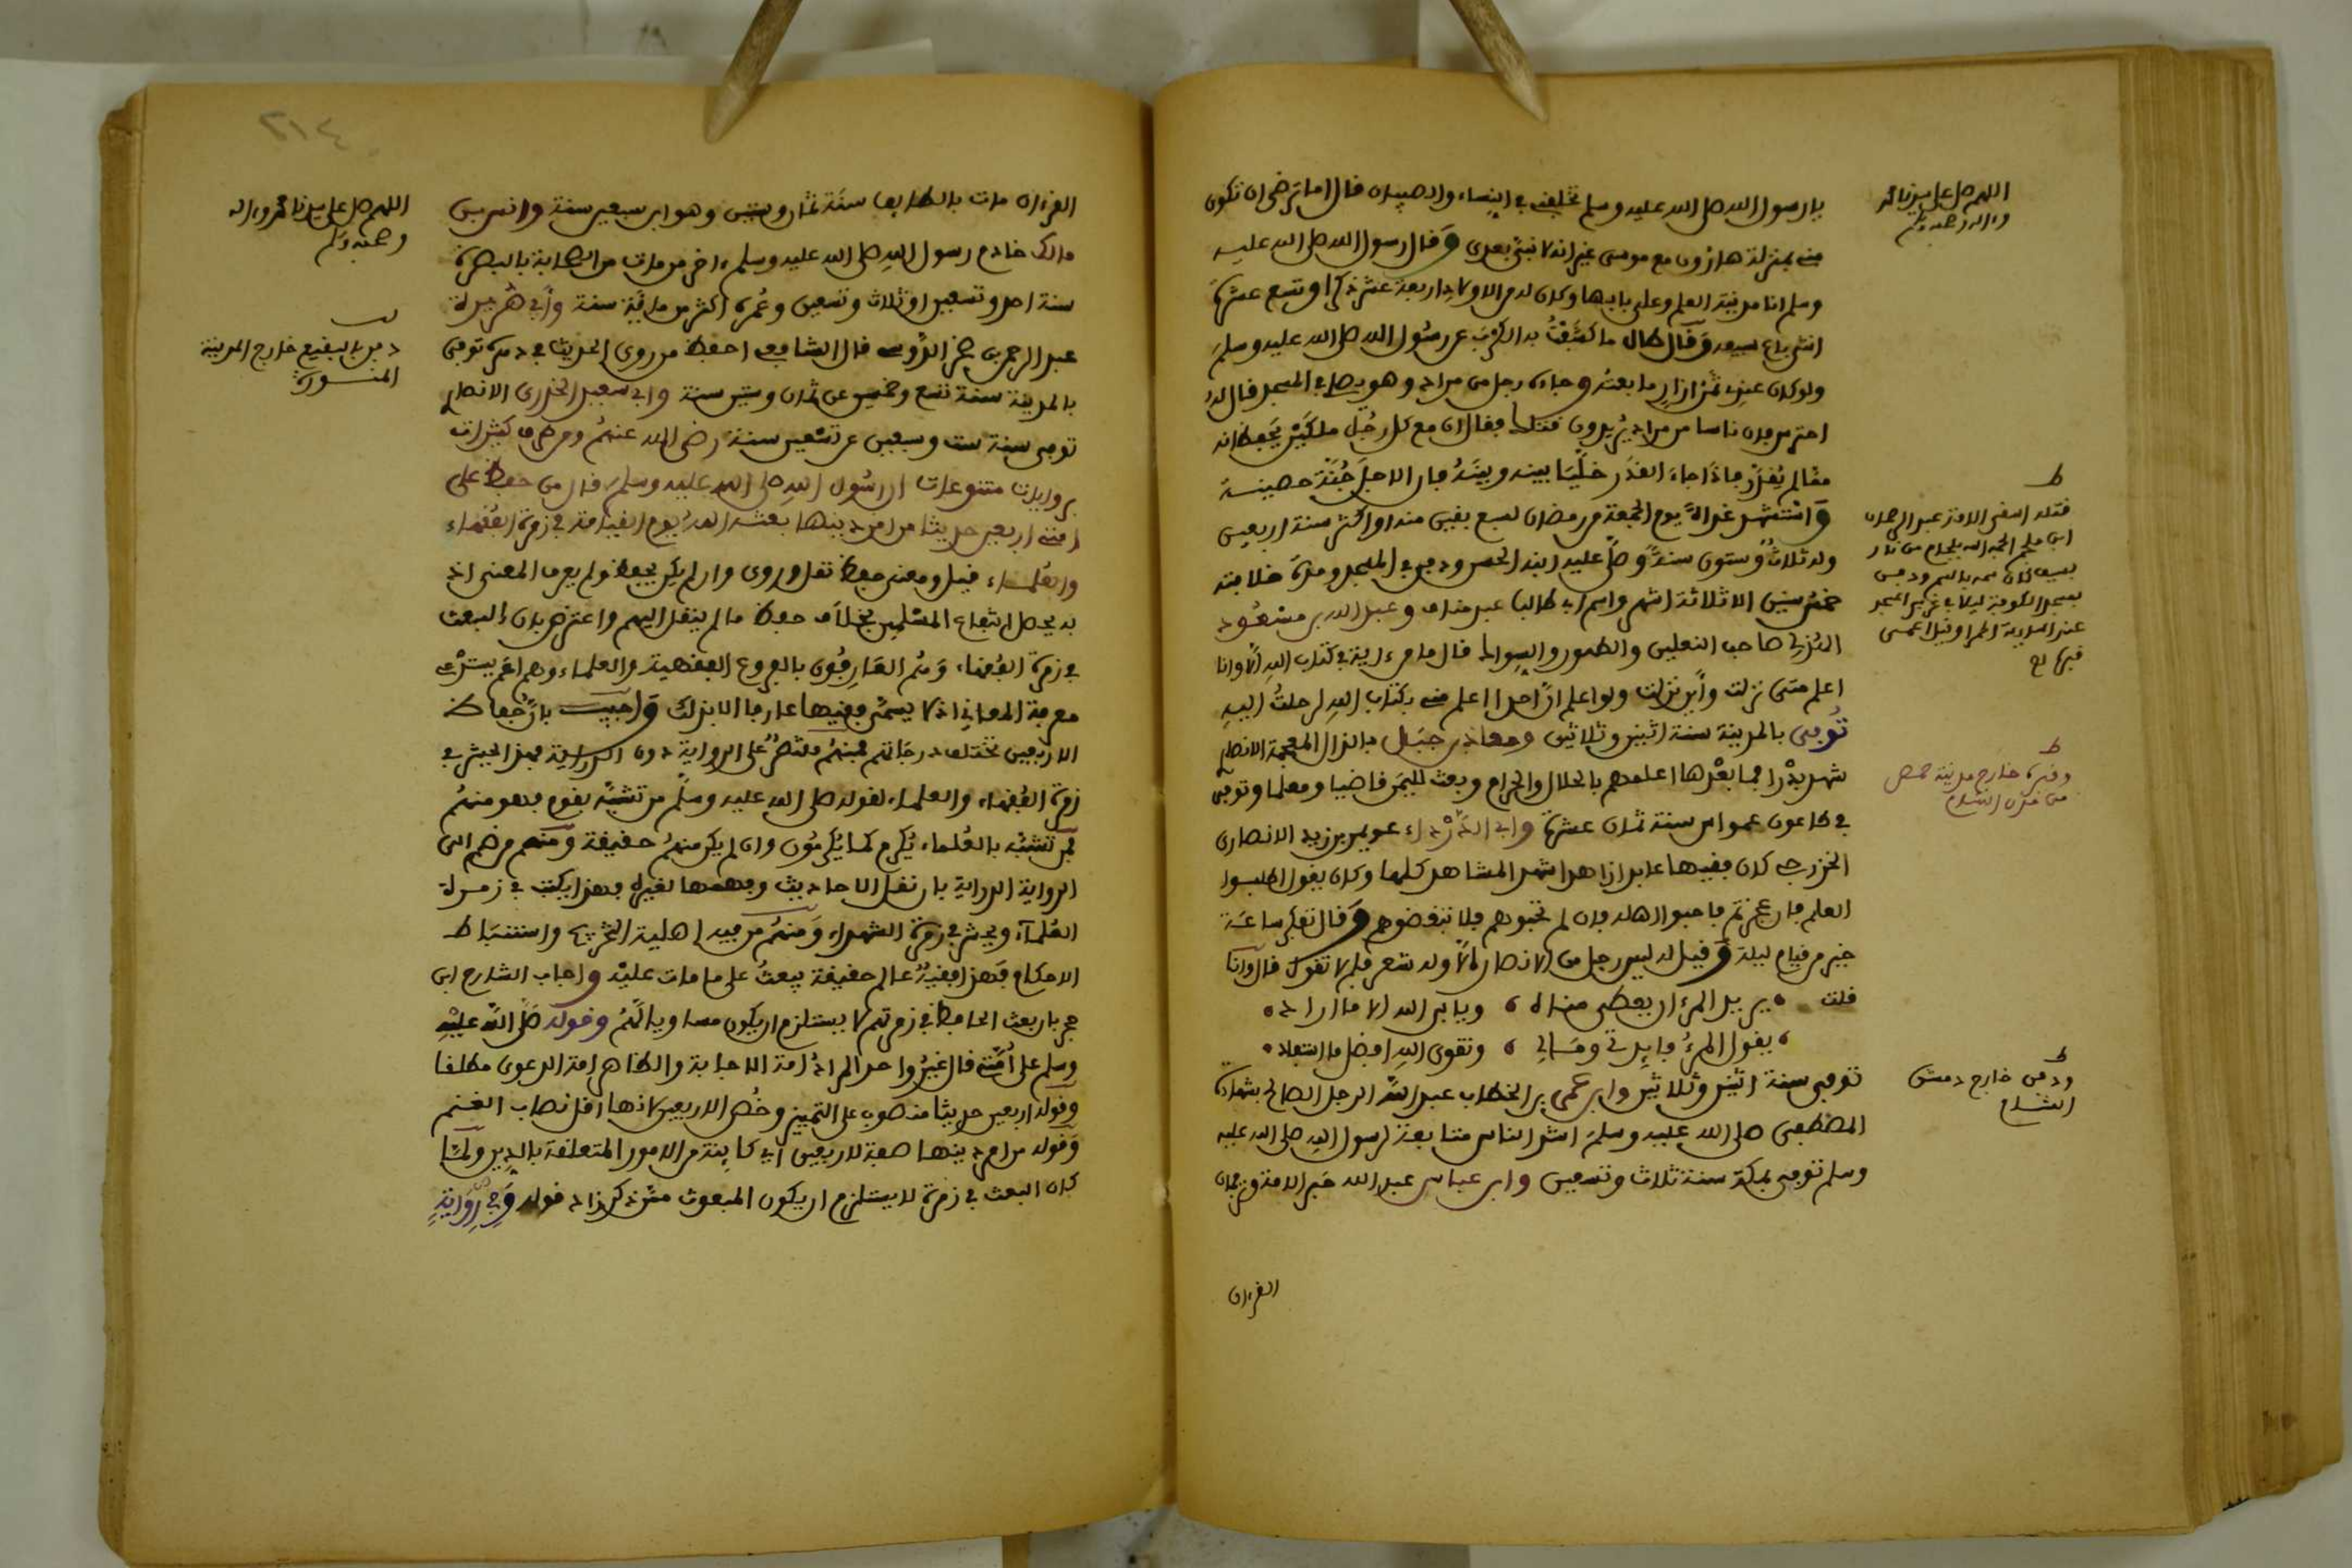 يا رسول الله صلى الله عليه وسلم تخلفني في النساء والصبيان قال اما ترضى ان تكون
مني بمنزلة هارون مع موسى غير انه لا نبي بعدي وقال رسول الله صلى الله عليه
وسلم انا مدينة العلم وعلي بابها وكان له من الاولاد اربعة عشر ذكرا وتسع عشرة
انثى باع سيفه وقال طال ما كشفت به الكرب عن رسول الله صلى الله عليه وسلم
ولو كان عندي ثمن ازار ما بعته وجاءه رجل من مراد وهو يصلي في المسجد فقال له
احترس فان ناسا من مراد يريدون قتلك فقال ان مع كل رجل ملكين يحفظانه
مما لم يقدر فاذا جاء القدر خليا بينه وبينه وان الاجل جنة حصينة
واستشهد غداة يوم الجمعة من رمضان لسبع بقين منه او اكثر سنة اربعين
وله ثلاث وستون سنة وصلى عليه ابنه الحسن ودفن في المسجد ومدة خلافته
خمس سنين الا ثلاثة اشهر واسم ابي طالب عبد مناف وعبد الله بن مسعود
الهذلي صاحب النعلين والطهور والسواك قال ما من ءاية في كتاب الله الا وانا
اعلم متى نزلت واين نزلت ولو اعلم ان احدا اعلم مني بكتاب الله لرحلت اليه
توفي بالمدينة سنة اثنين وثلاثين ومعاذ بن جبل بالذال المعجمة الانصاري
شهد بدرا فما بعدها اعلمهم بالحلال والحرام وبعث لليمن قاضيا ومعلما وتوفي
في طاعون عمواس سنة ثمان عشرة وابي الدرداء عويمر بن زيد الانصاري
الخزرجي كان فقيها عابدا زاهدا شهد المشاهد كلها وكان يقول اطلبوا
العلم فان عجزتم فاحبوا اهله فان لم تحبوهم فلا تبغضوهم وقال تفكر ساعة
خير من قيام ليلة وقيل له ليس رجل من الانصار الا وله شعر فلم لا تقول قال وانا
قلت • يريد المرء ان يعطى مناه ، ويابى الله الا ما اراد •
، يقول المرء فايدتي ومالي ، وتقوى الله افضل ما استفاد •
توفي سنة اثنين وثلاثين وابن عمر بن الخطاب عبد الله الرجل الصالح بشهادة
المصطفى صلى الله عليه وسلم اشد الناس متابعة لرسول الله صلى الله عليه
وسلم توفي بمكة سنة ثلاث وتسعين وابن عباس عبد الله حبر الامة وترجمان
القرءان
اللهم صل على سيدنا محمد
وءاله وصحبه وسلم
ط
قتله اشقى الامة عبد الرحمان
ابن ملجم
ط
وقبره خارج مدينة حمص
من مدن الشام
ط
ودفن خارج دمشق
الشام
٢١٤
القرءان مات بالطايف سنة ثمان وستين وهو ابن سبعين سنة وانس بن
مالك خادم رسول الله صلى الله عليه وسلم ءاخر من مات من الصحابة بالبصرة
سنة احدى وتسعين او ثلاث وتسعين وعمره اكثر من ماية سنة وابي هريرة
عبد الرحمن بن صخر الدوسي قال الشافعي احفظ من روى الحديث في دهره توفي
بالمدينة سنة تسع وخمسين عن ثمان وستين سنة وابي سعيد الخدري الانصاري
توفي سنة ست وسبعين عن تسعين سنة رضي الله عنهم ومن طرق كثيرات
بروايات متنوعات ان رسول الله صلى الله عليه وسلم قال من حفظ على
امتي اربعين حديثا من امر دينها بعثه الله يوم القيامة في زمرة الفقهاء
والعلماء قيل ومعنى حفظ نقل وروى وان لم يكن يحفظ ولم يعرف المعنى اذ
به يحصل انتفاع المسلمين بخلاف حفظ ما لم ينقل اليهم واعترض بان البعث
في زمرة الفقهاء وهم العارفون بالفروع الفقهية والعلماء وهم اعم يستدعي
معرفة المعاني اذ لا يسمى فقيها عارفا الا بذلك واجيب بان حفاظ
الاربعين تختلف درجاتهم فمنهم مقتصر على الرواية دون الدراية فهذا يحشر في
زمرة الفقهاء والعلماء لقوله صلى الله عليه وسلم من تشبه بقوم فهو منهم
فمن تشبه بالعلماء يكرم كما يكرمون وان لم يكن منهم حقيقة ومنهم من ضم الى
الرواية الدراية بان نقل الاحاديث وفهمها لغيره فهذا يكتب في زمرة
العلماء ويحشر في زمرة الشهداء ومنهم من فيه اهلية التخريج واستنباط
الاحكام فهذا فقيه عالم حقيقة يبعث على ما مات عليه واجاب الشارح ابن
حجر بان بعث الحافظ في زمرتهم لا يستلزم ان يكون مساويا لهم وقوله صلى الله عليه
وسلم على امتي قال غير واحد المراد امة الاجابة والظاهر امة الدعوى مطلقا
وقوله اربعين حديثا منصوب على التمييز وخص الاربعين لانها اقل نصاب الغنم
وقوله من امر دينها صفة لاربعين اي كاينة من الامور المتعلقة بالدين ولما
كان البعث في زمرة لا يستلزم ان يكون المبعوث مثلهم قوله وفي رواية
اللهم صل على سيدنا محمد وءاله
وصحبه وسلم
دفن بالبقيع خارج المدينة
المنورة